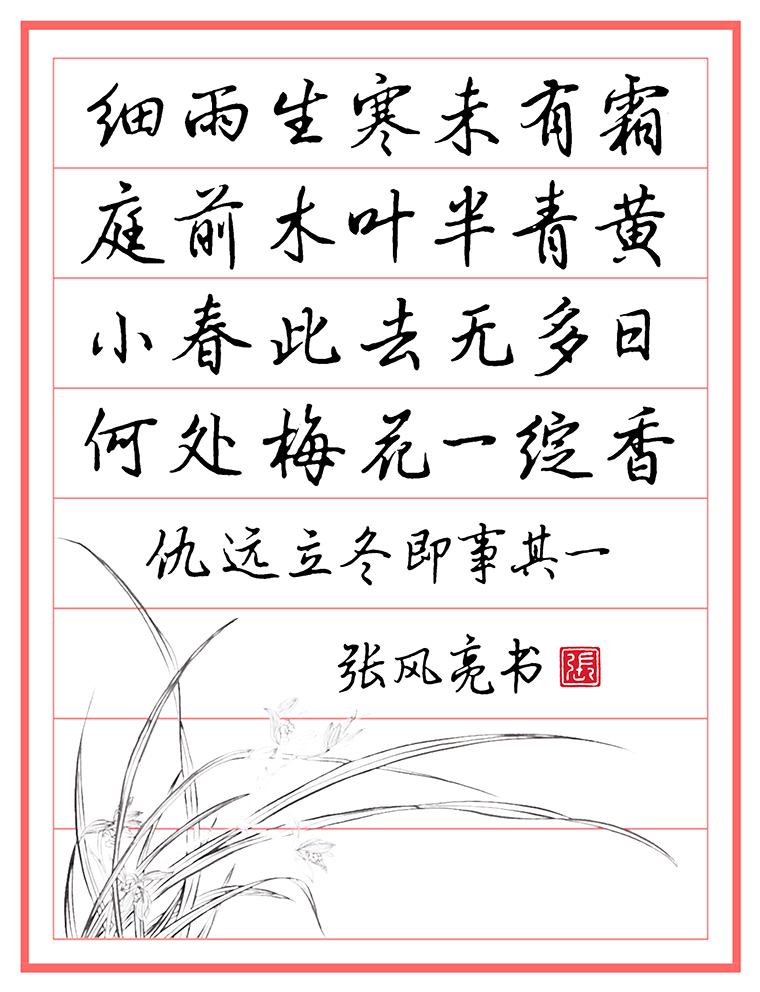 细雨生寒未有霜
庭前木叶半青黄
小春此去无多日
何处梅花一绽香
仇远立冬即事其一
张风亮书
張